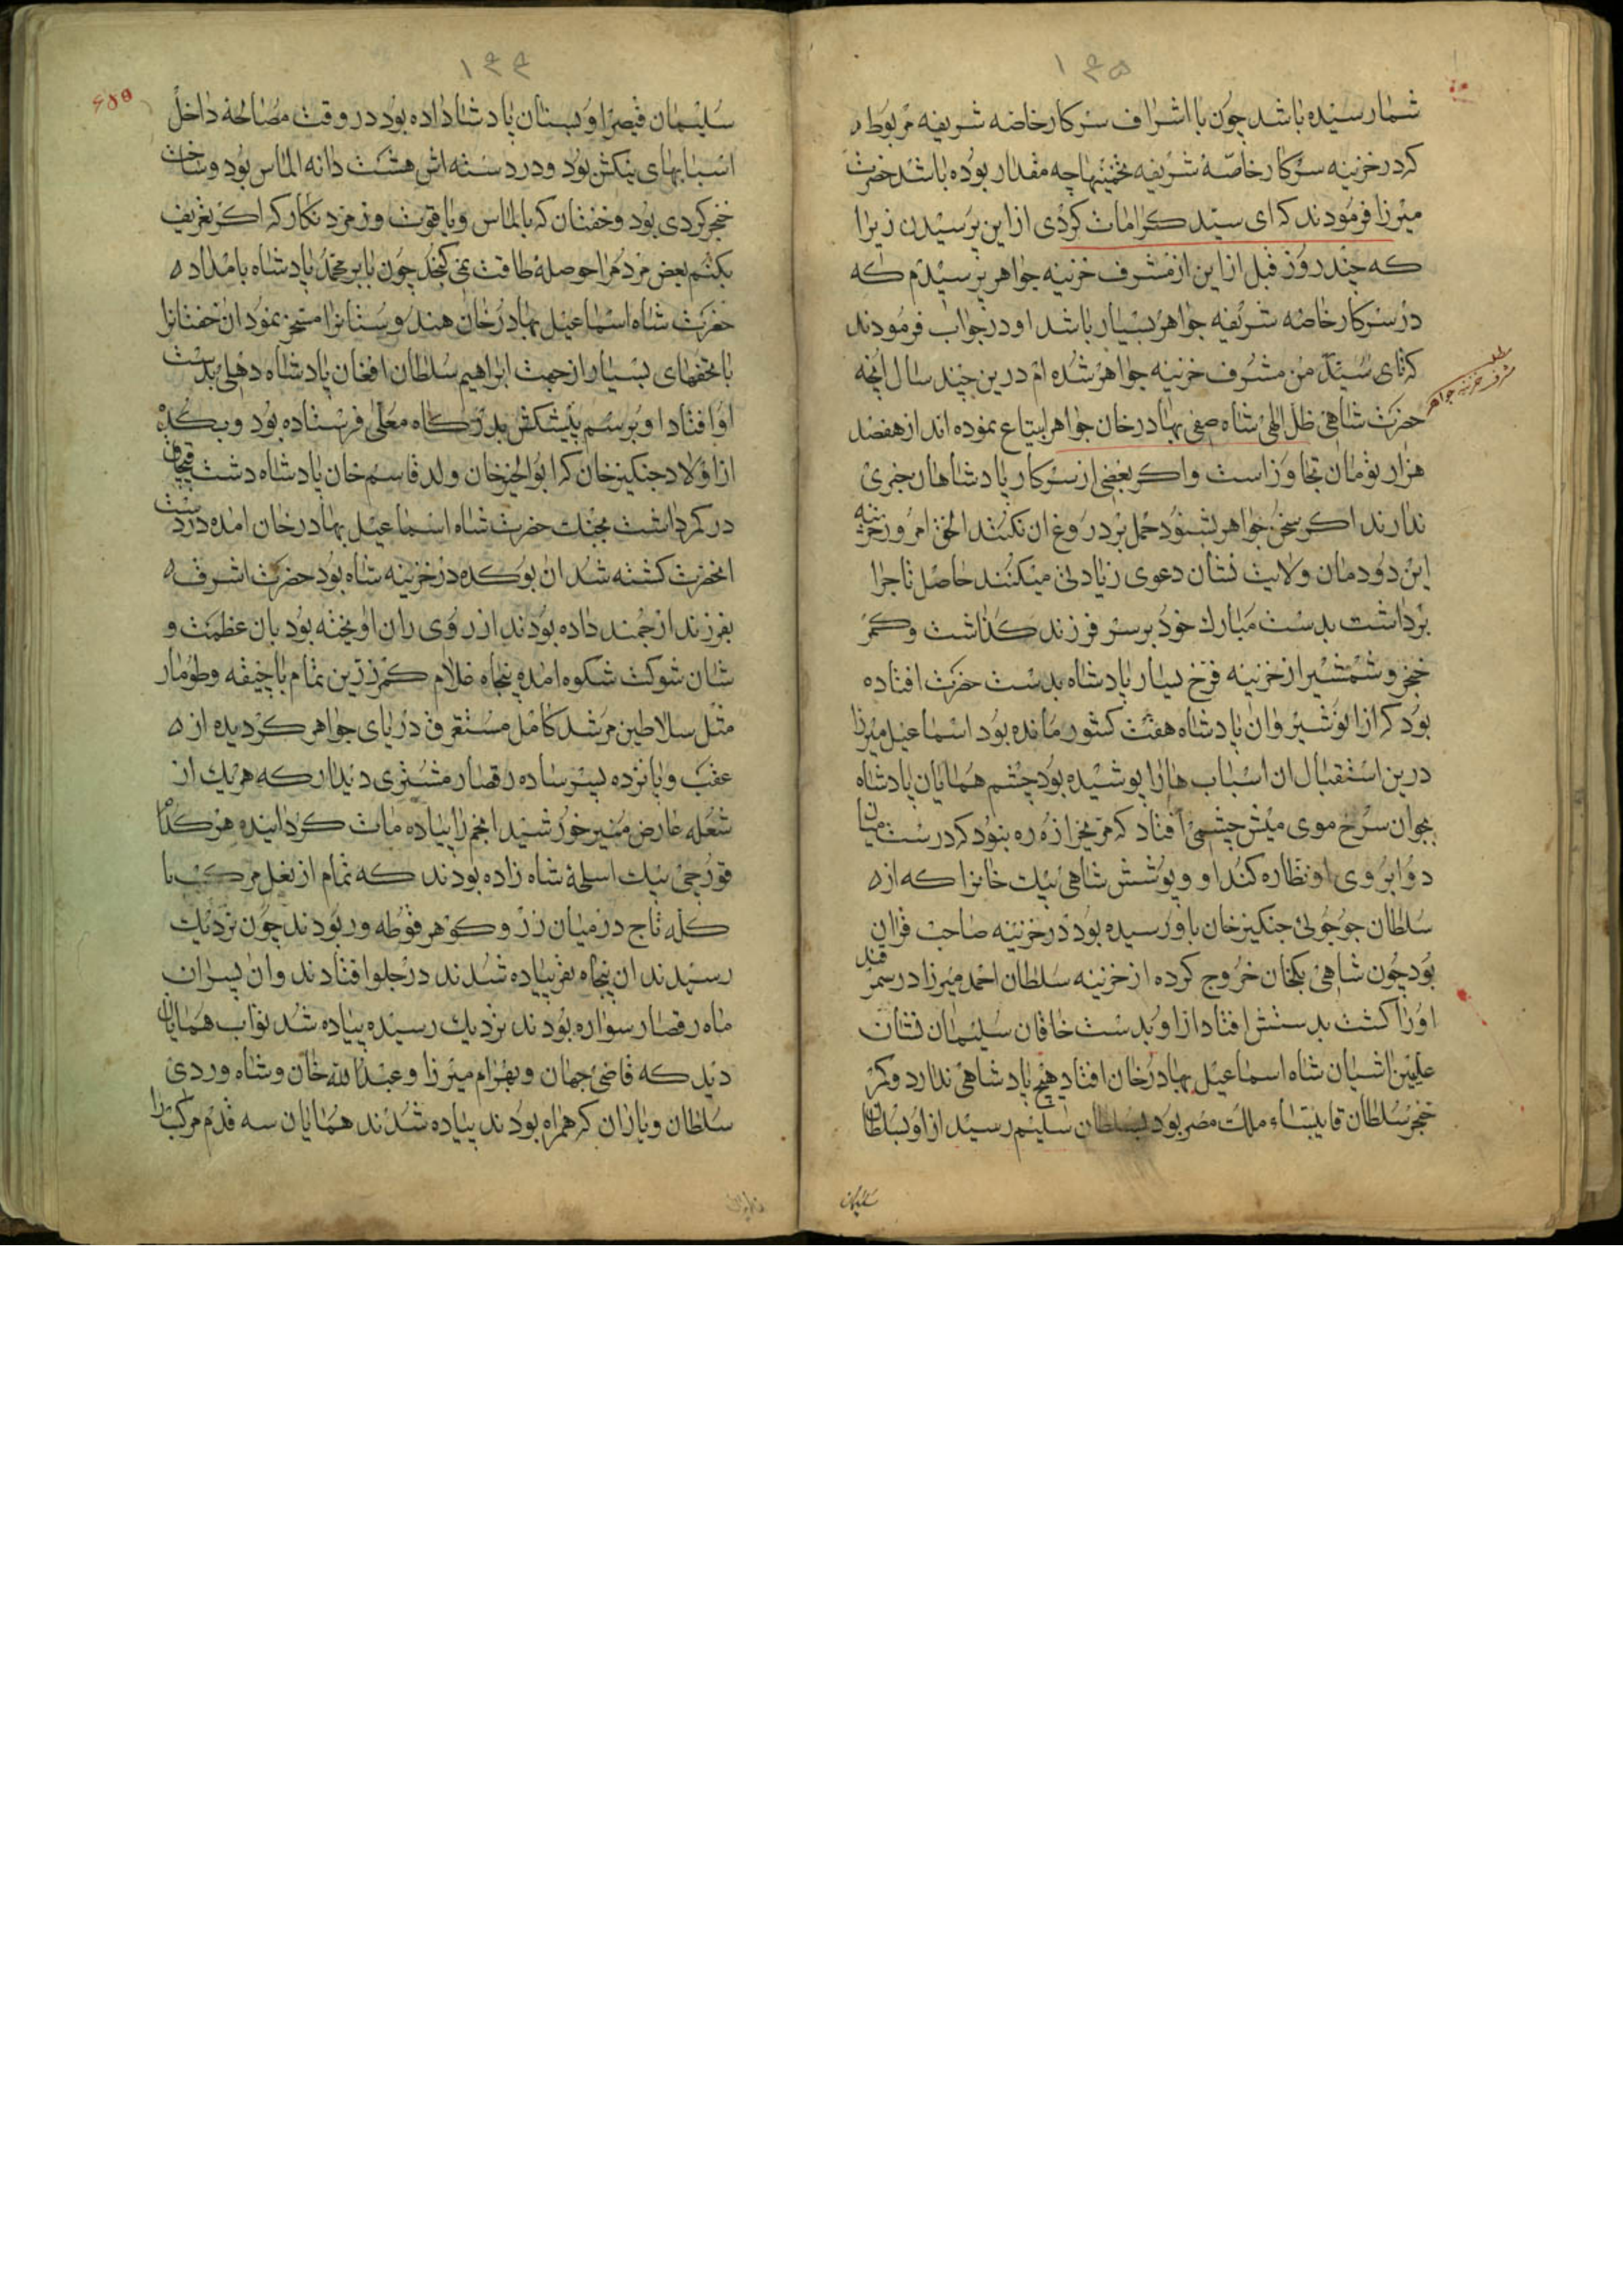 ۱۴۵
شمار رسیده باشد چون با اشراف سرکار خاصه شریفه مربوطه
که در خزینه سرکار خاصّه شریفه تخمینها چه مقدار بوده باشد حضرت
میرزا فرمودند که ای سیّد کرامات کردی از این پرسیدن زیرا
که چند روز قبل از این از مشرف خزینه جواهر پرسیدم که
در سرکار خاصه شریفه جواهر بسیار باشد او در جواب فرمودند
که ای سیّد من مشرف خزینه جواهر شده ام درین چند سال آنچه
مشرف خزینه جواهر
حضرت شاهی ظل الهی شاه صفی بهادرخان جواهر ابتیاع نموده اند از هفصد
هزار تومان تجاوز است و اکر بعضی از سرکار پادشاهان خبری
ندارند اکر سخن جواهر بشنود حمل بر دروغ ان نکنند الحق امروز خزینه
این دودمان ولایت نشان دعوی زیادتی میکنند حاصل تاج را
برداشت بدست مبارک خود بر سر فرزند کذاشت و کمر
خنجر و شمشیر از خزینه فرخ یسار پادشاه بدست حضرت افتاده
بود که از انوشیروان پادشاه هفت کشور مانده بود اسماعیل میرزا
درین استقبال ان اسباب هارا پوشیده بود چشم همایان پادشاه
بجوان سرخ موی میش چشمی افتاد که مریخ را زهره نبود که درست میان
دو ابروی او نظاره کند او و پوشش شاهی بیک خانرا که از
سلطان جوجوئی جنکیزخان باو رسیده بود در خزینه صاحب قران
بود چون شاهی بکخان خروج کرده از خزینه سلطان احمد میرزا در سمرقند
اورا کشت بدستش افتاد از او بدست خاقان سلیمان نشان
علیین اشیان شاه اسماعیل بهادرخان افتاد هیچ پادشاهی ندارد و کمر
خنجر سلطان قایتبای ملک مصر بود بسلطان سلیم رسید از او بسلطان
سلیمان
۱۴۴
سلیمان قیصر او ببستان پادشاه داده بود در وقت مصالحه داخل
اسبابهای پیکش بود و در دسته اش هشت دانه الماس بود و ساخت
خنجر کردی بود و خفتان که بالماس و یاقوت و زمرد نکار که اکر تعریف
بکنم بعض مردم را حوصله طاقت نمی کنجد چون بابر محمد پادشاه بامداد
حضرت شاه اسماعیل بهادرخان هندوستانرا مسخر نمود ان خفتانرا
با تحفهای بسیار از جهت ابراهیم سلطان افغان پادشاه دهلی بدست
او افتاد او برسم پیشکش بدرکاه معلی فرستاده بود و بکده
از اولاد جنکیزخان که ابوالخیرخان ولد قاسم خان پادشاه دشت قبچاق
در کمر داشت بجنک حضرت شاه اسماعیل بهادرخان امده در دست
انحضرت کشته شد ان بوکده در خزینه شاه بود حضرت اشرف
بفرزند ارجمند داده بودند از روی ران اویخته بود بان عظمت و
شان شوکت شکوه امده پنجاه غلام کمر زرین تمام با جیفه و طومار
مثل سلاطین مرشد کامل مستغرق دریای جواهر کردیده از
عقب و پانزده پسر ساده رقصار مشتری دیدار که هر یک از
شعله عارض منیر خورشید انجم را پیاده مات کردانیده هر کدام
قورچی بیک اسلحهٔ شاه زاده بودند که تمام از نعل مرکب تا
کله تاج در میان زر و کوهر غوطه ور بودند چون نزدیک
رسیدند ان پنجاه نفر پیاده شدند در جلو افتادند و ان پسران
ماه رقصار سواره بودند نزدیک رسیده پیاده شد نواب همایان
دید که قاضی جهان و بهرام میرزا و عبدالله خان و شاه وردی
سلطان و یاران که همراه بودند پیاده شدند همایان سه قدم مرکب را